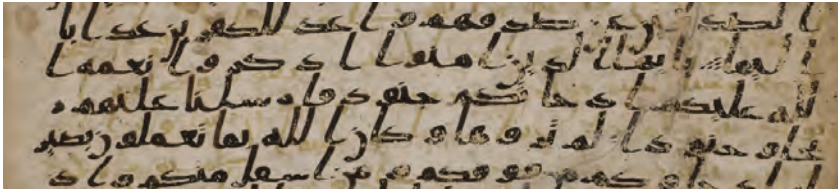 ا لصدقين عن صدقهم و ا عد للكفرين عذابا
ا ليما يا يها الذين ا منوا ا ذكروا نعمه ا
لله عليكم ا ذ جا تكم جنود فا رسلنا عليهم ر
يحا و جنودا لم تروها و كان الله بما تعملون بصير
ا ا ذ جا وكم من فوقكم و من ا سفل منكم و ا ذ